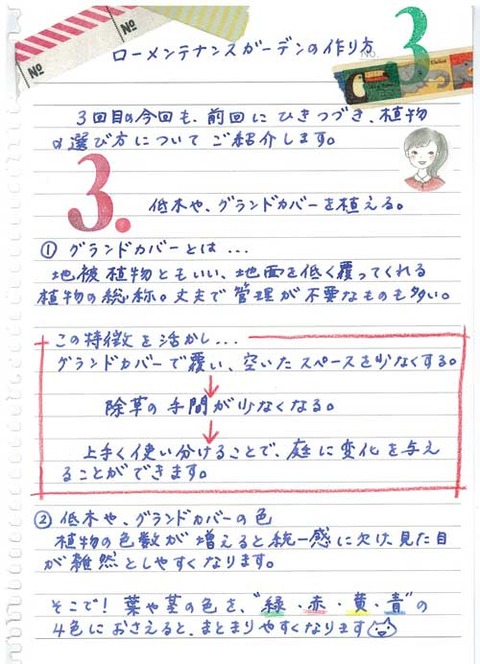 No
No
ローメンテナンスガーデンの作り方
No.
3
3回目の今回も、前回にひきつづき、植物
の選び方についてご紹介します。
3.
低木や、グランドカバーを植える。
① グランドカバーとは...
地被植物ともいい、地面を低く覆ってくれる
植物の総称。丈夫で管理が不要なものも多い。
この特徴を活かし...
グランドカバーで覆い、空いたスペースを少なくする。
↓
除草の手間が少なくなる。
↓
上手く使い分けることで、庭に変化を与え
ることができます。
② 低木や、グランドカバーの色
植物の色数が増えると統一感に欠け、見た目
が雑然としやすくなります。
そこで!葉や茎の色を、"緑・赤・黄・青"の
4色におさえると、まとまりやすくなります